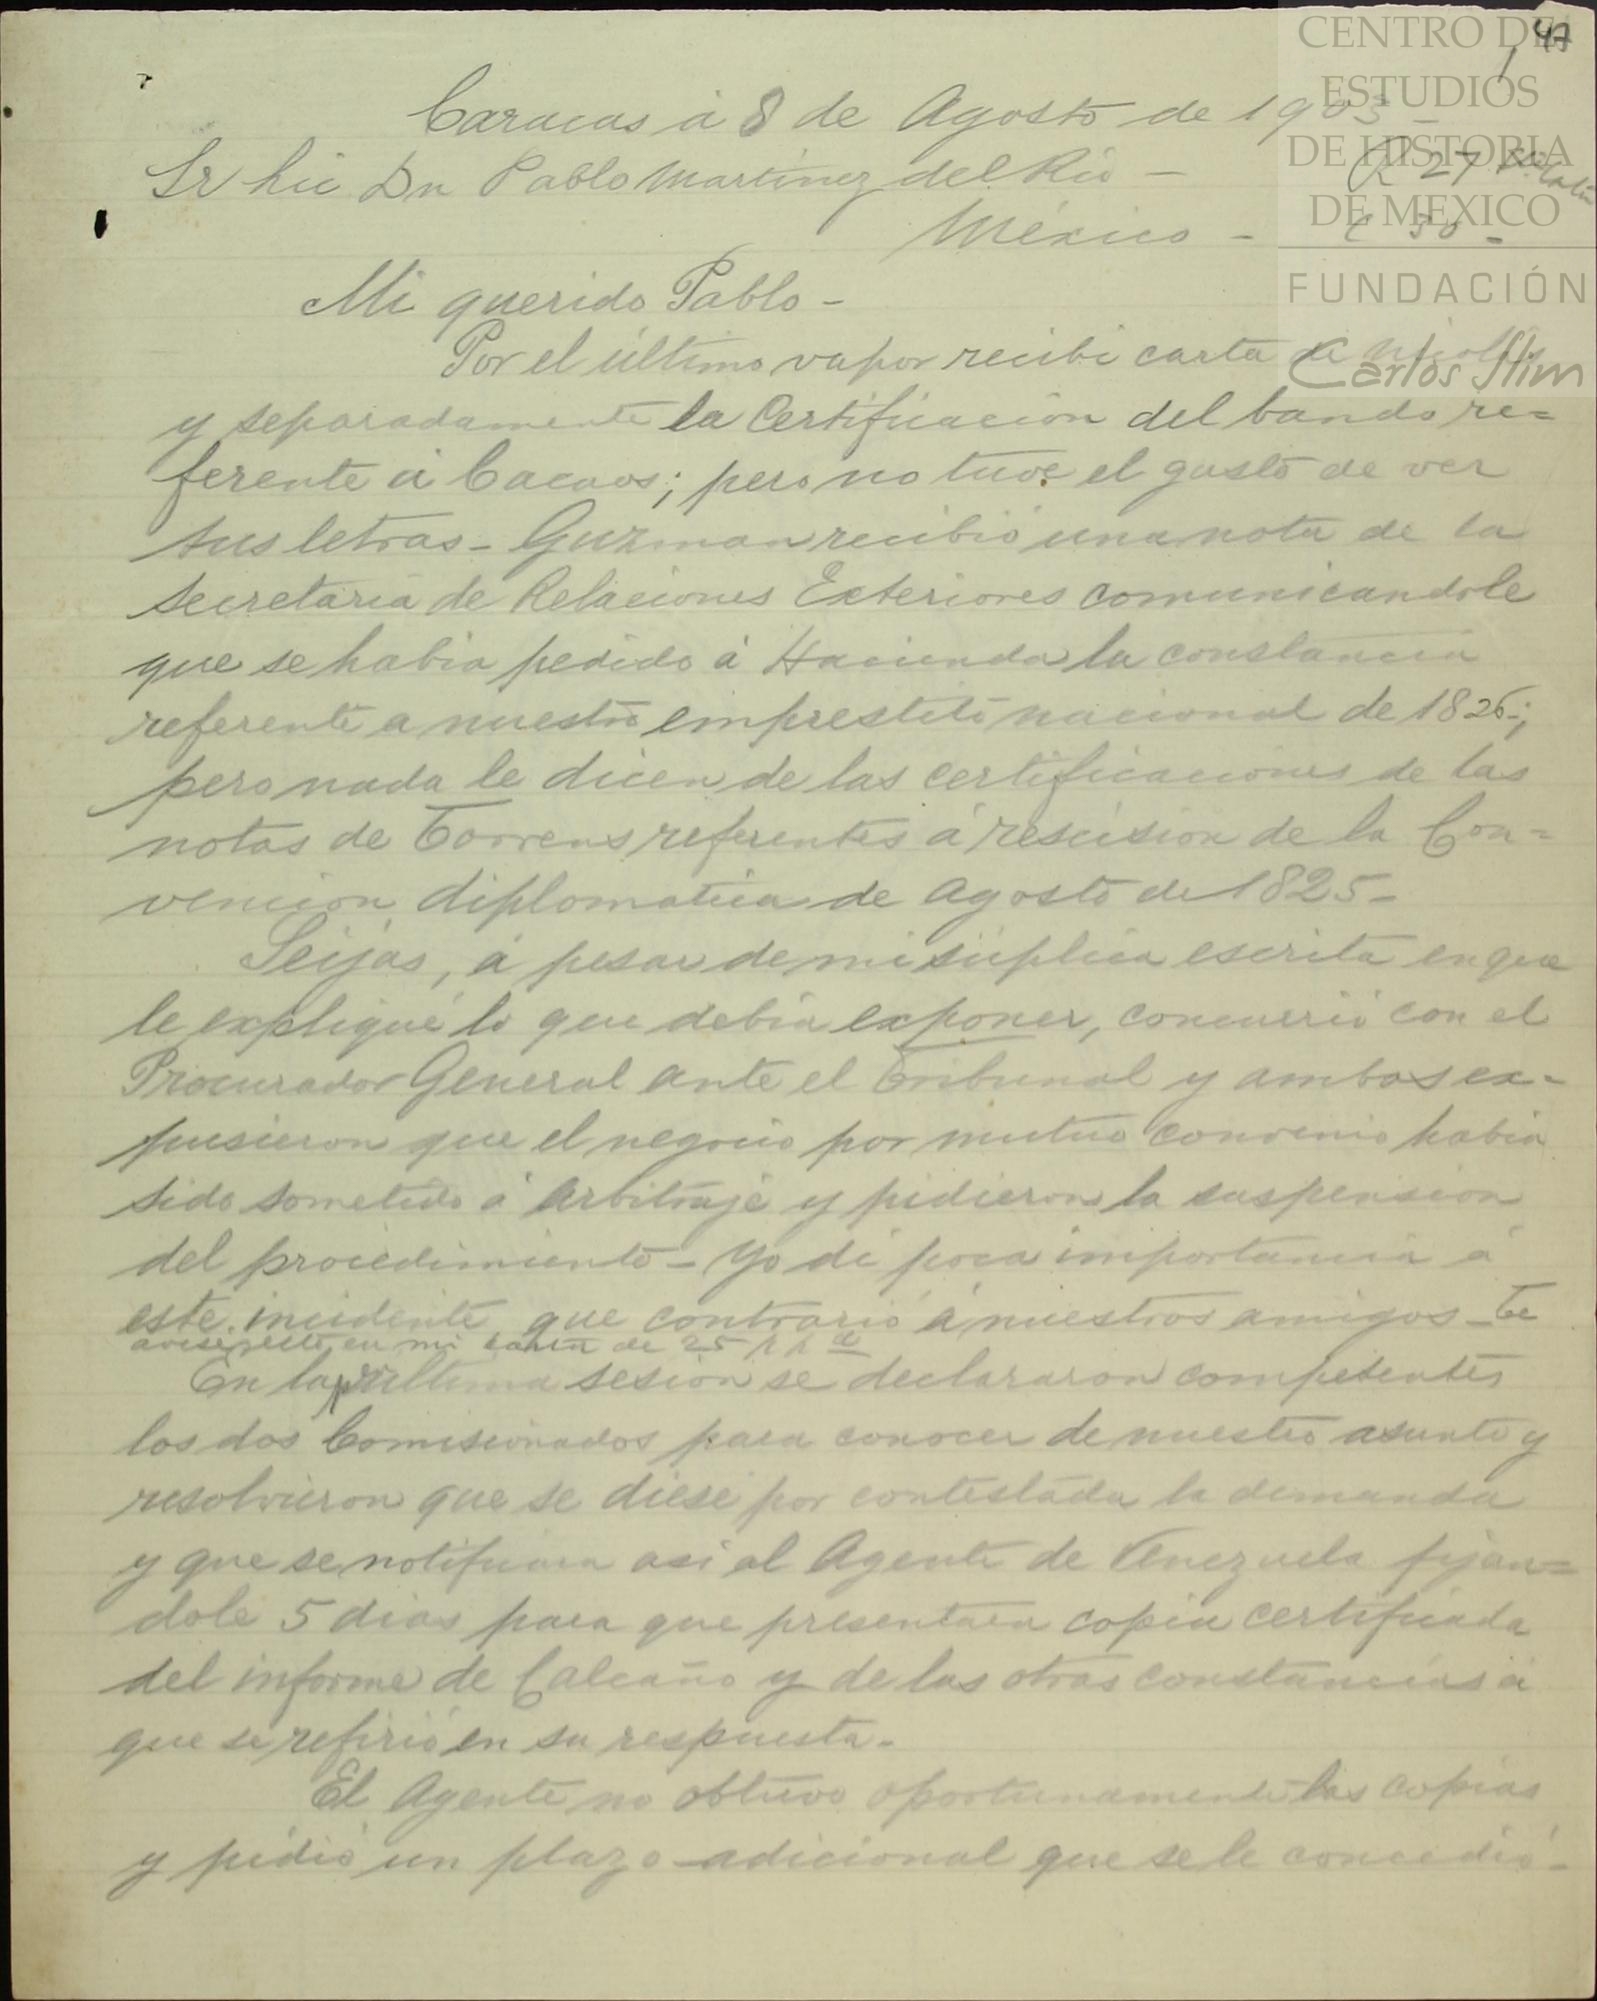 47
1
Caracas á 8 de Agosto de 1903 -
R 27
Sr Lic Dn Pablo Martinez del Rio -
C 30 -
México -
Mi querido Pablo -
Por el último vapor recibi carta de Nicolas
y separadamente la Certificación del bando re=
ferente á Cacaos; pero no tuve el gusto de ver
tus letras - Guzman recibió una nota de la
Secretaria de Relaciones Exteriores comunicandole
que se habia pedido á Hacienda la constancia
referente a nuestro emprestito nacional de 1826-;
pero nada le dicen de las certificaciones de las
notas de Torrens referentes á rescision de la Con=
vencion diplomatica de Agosto de 1825 -
Seijas, á pesar de mi súplica escrita en que
le expliqué lo que debia exponer, concurrió con el
Procurador General ante el Tribunal y ambos ex-
pusieron que el negocio por mutuo convenio habia
sido sometido á Arbitraje y pidieron la suspension
del procedimiento - Yo di poca importancia á
este incidente que contrarió á nuestros amigos - Te
avisé esto en mi carta de 25 p p do
En la penúltima sesion se declararon competentes
los dos Comisionados para conocer de nuestro asunto y
resolvieron que se diese por contestada la demanda
y que se notificara asi al Agente de Venezuela fijan=
dole 5 dias para que presentara copia certificada
del informe de Calcaño y de las otras constancias á
que se refirió en su respuesta -
El Agente no obtuvo oportunamente las copias
y pidió un plazo adicional que se le concedió -
CENTRO DE
ESTUDIOS
DE HISTORIA
DE MEXICO
FUNDACIÓN
Carlos Slim